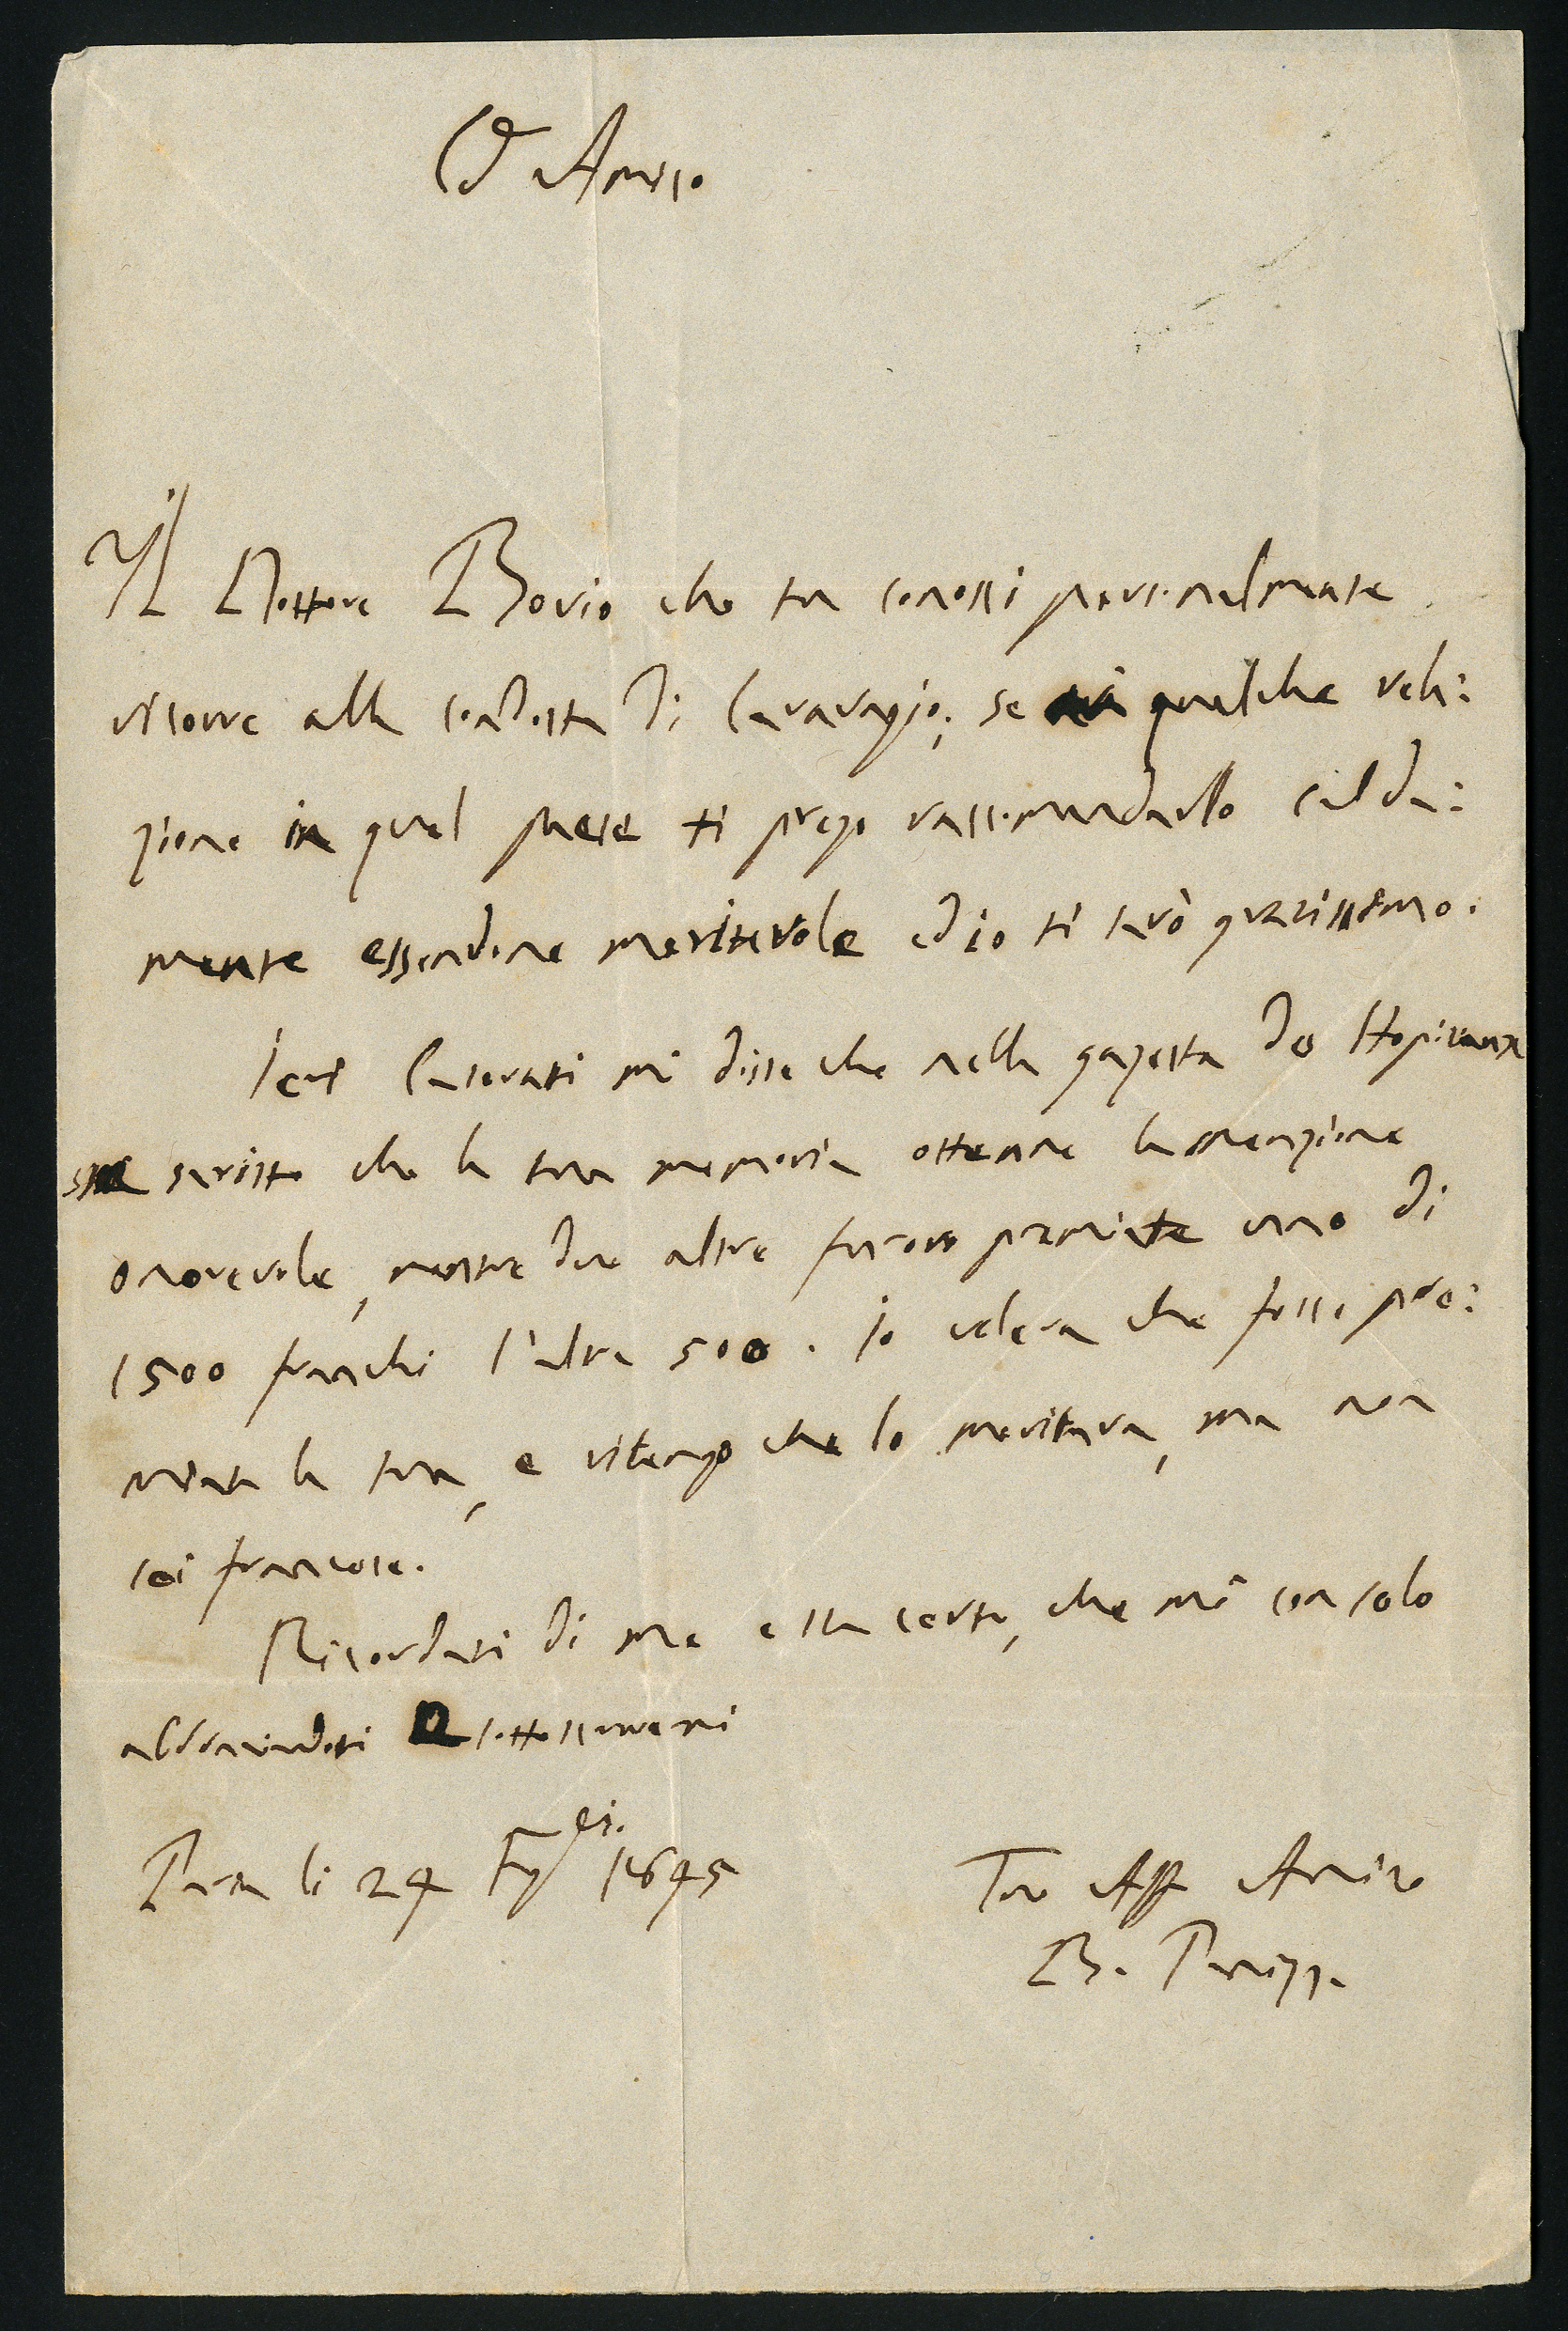 C.o Amico
Il Dottore Bovio che tu conossi personalmente
ricorre alla condotta di Caravagio; se ai qualche rela:
zione in quel paese ti prego raccomandarllo calda:
mente essendone meritevole ed io ti sarò gratissimo.
Ieri Caterati mi disse che nella gazetta des Hopitaux
scritto che la tua memoria ottenne la menzione
onorevole, mentre due altre furono premiate uno di
1500 franchi l'altra 500. Io voleva che fosse pre:
miata la tua, e ritengo che lo meritava, ma non
sei francese.
Ricordati di me e sta certo, che mi consolo
abbracciandoti sottoscrivermi
Pavia li 24 1845
Tuo Aff Amico
B. Panizza